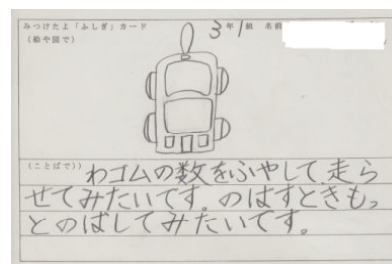 みつけたよ「ふしぎ」カード 3年1組 名前
(絵や図で)
(ことばで) わゴムの数をふやして、走ら
せてみたいです。のばすときもっ
とのばしてみたいです。